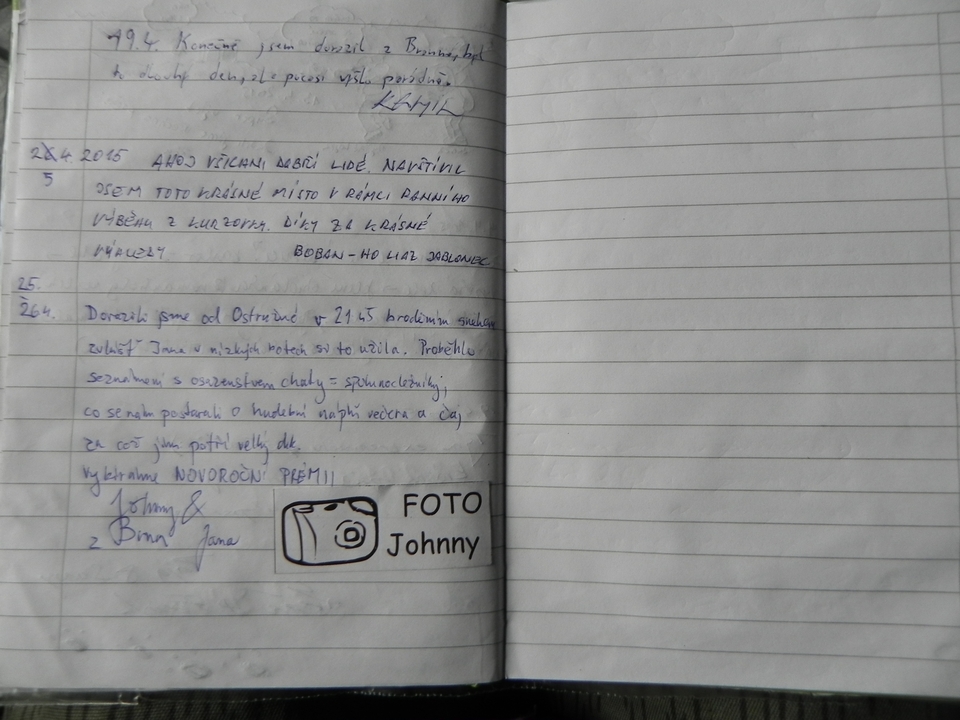 19.4. Konečně jsem dorazil z Brna, byl
to dlouhý den, ale počasí vyšlo parádně.
KAMIL
4 2015 AHOJ VŠICHNI DOBŘÍ LIDÉ. NAVŠTÍVIL
5 JSEM TOTO KRÁSNÉ MÍSTO V RÁMCI RANNÍHO
VÝBĚHU Z KURZOVKY. DÍKY ZA KRÁSNÉ
VÝHLEDY BOBAN - HO LIAZ JABLONEC
25.
26.4. Dorazili jsme od Ostružné v 21 45 broděním sněhem
zvlášť Jana v nízkých botech si to užila. Proběhlo
seznámení s osazenstvem chaty = spolunocležníky,
co se nám postarali o hudební náplň večera a čaj
za což jim patří velký dík.
NOVOROČNÍ
Johnny &
z Brna Jana
FOTO
Johnny